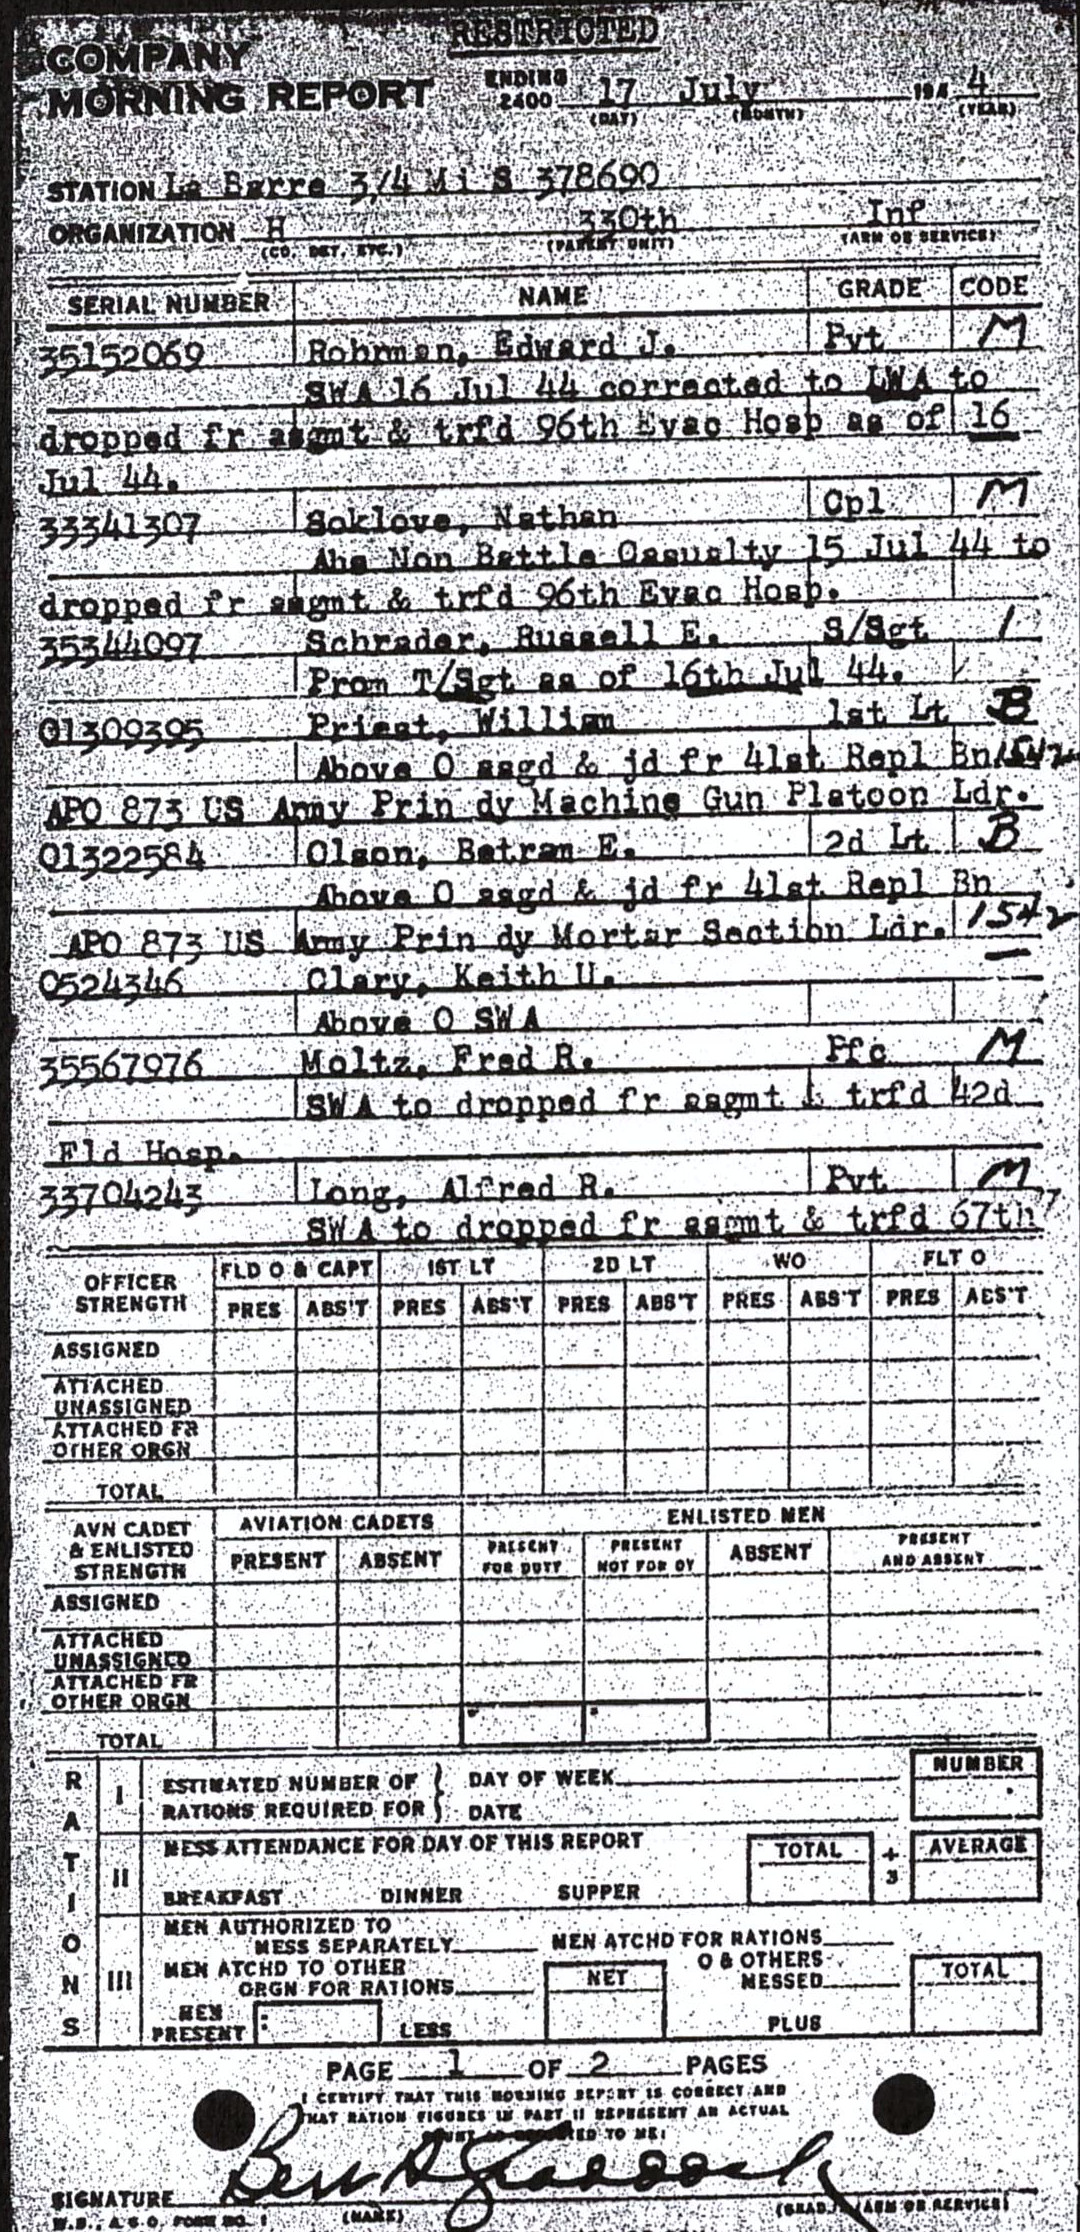 RESTRICTED
COMPANY
MORNING REPORT ENDING 2400 17 July 194 4
(DAY) (MONTH) (YEAR)
STATION La Barre 3/4 Mi S 378690
ORGANIZATION H 330th Inf
(CO. DET. ETC.) (PARENT UNIT) (ARM OR SERVICE)
SERIAL NUMBER NAME GRADE CODE
35152069 Rohrman, Edward J. Pvt M
SWA 16 Jul 44 corrected to LWA to
dropped fr asgmt & trfd 96th Evac Hosp as of 16
Jul 44.
33341307 Soklove, Nathan Cpl M
Abs Non Battle Casualty 15 Jul 44 to
dropped fr asgmt & trfd 96th Evac Hosp.
35344097 Schrader, Russell E. S/Sgt 1
Prom T/Sgt as of 16th Jul 44.
01309395 Priest, William 1st Lt B
Above O asgd & jd fr 41st Repl Bn 1542
APO 873 US Army Prin dy Machine Gun Platoon Ldr.
01322584 Olson, Betram E. 2d Lt B
Above O asgd & jd fr 41st Repl Bn
APO 873 US Army Prin dy Mortar Section Ldr. 1542
0524346 Clary, Keith U. —
Above O SWA
35567976 Moltz, Fred R. Pfc M
SWA to dropped fr asgmt & trfd 42d
Fld Hosp.
33704243 Long, Alfred R. Pvt M
SWA to dropped fr asgmt & trfd 67th
OFFICER STRENGTH FLD O & CAPT 1ST LT 2D LT WO FLT O
PRES ABS'T PRES ABS'T PRES ABS'T PRES ABS'T PRES ABS'T
ASSIGNED
ATTACHED
UNASSIGNED
ATTACHED FR
OTHER ORGN
TOTAL
AVN CADET & ENLISTED STRENGTH AVIATION CADETS ENLISTED MEN
PRESENT ABSENT PRESENT FOR DUTY PRESENT NOT FOR DY ABSENT PRESENT AND ABSENT
ASSIGNED
ATTACHED
UNASSIGNED
ATTACHED FR
OTHER ORGN
TOTAL
RATIONS
I ESTIMATED NUMBER OF DAY OF WEEK NUMBER
RATIONS REQUIRED FOR DATE
II MESS ATTENDANCE FOR DAY OF THIS REPORT TOTAL ÷ 3 AVERAGE
BREAKFAST DINNER SUPPER
III MEN AUTHORIZED TO
MESS SEPARATELY MEN ATCHD FOR RATIONS
MEN ATCHD TO OTHER O & OTHERS
ORGN FOR RATIONS NET MESSED TOTAL
MEN
PRESENT LESS PLUS
PAGE 1 OF 2 PAGES
I CERTIFY THAT THIS MORNING REPORT IS CORRECT AND
THAT RATION FIGURES IN PART II REPRESENT AN ACTUAL
TO ME:
SIGNATURE
(NAME) (GRADE) (ARM OR SERVICE)
W.D., A.G.O. FORM NO. 1